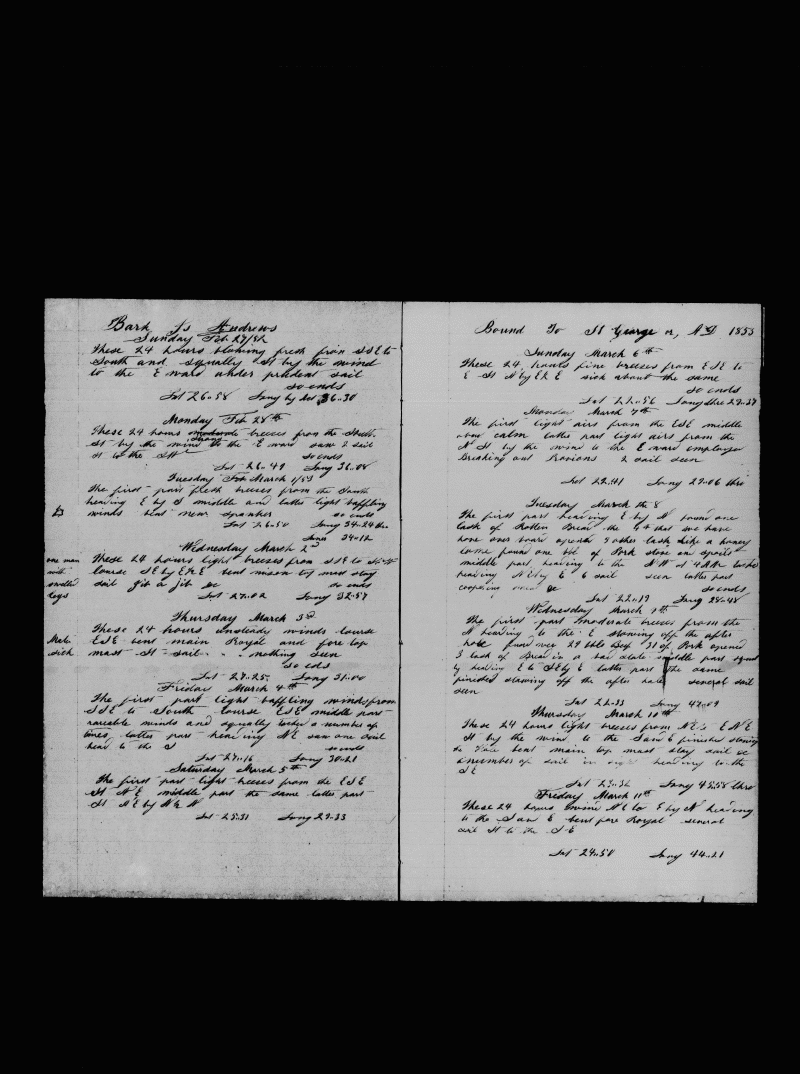 Bark Js Andrews
Sunday Feb 27/53
These 24 hours blowing fresh from SSE to
South and squally St by the wind
to the E ward under prudent sail
so ends
Lat 26..58 Long by 36..30
Monday Feb 28th
These 24 hours moderate breezes from the South
St by the wind to the E ward saw 2 sail
St to the SW so ends
Lat 26..49 Long 36..08
Tuesday Feb March 1/53
The first part fresh breeses from the South
heading E by S middle and latter light baffling
winds bent new spanker so ends
Lat 26..50 Long 34-24
Long 34-12
Wednesday March 2d
one man
with
swelled
legs
These 24 hours light breeses from SSE to
course SE by E & E bent mison top mast stay
sail gib a jib &c so ends
Lat 27..02 Long 32..57
Thursday March 3d
Mate
sick
These 24 hours unsteady winds course
ESE bent main Royal and fore top
mast St sail nothing seen
so eds
Lat 27..25 Long 31..00
Friday March 4th
The first part light baffling winds from
SSE to South course ESE middle part
variable winds and squally tacked a number of
times latter part heading NE saw one sail
head to the S so ends
Lat 27..16 Long 30..21
Saturday March 5th
The first part light breeses from the ESE
St NE middle part the same latter part
St NE by N & N
Lat 25..31 Long 29..33
Bound To St George or, AD 1853
Sunday March 6th
These 24, hours fine breeses from ESE to
E St N by E & E sick about the same
so ends
Lat 22..56 Long 29-37
Monday March 7th
The first light airs from the ESE middle
calm latter part light airs from the
N St by the wind to the E ward employed
Breaking out Provisions 2 sail seen
Lat 22..41 Long 29..06
Tuesday March the 8
The first part heading E by N found one
cask of Rotten Bread the 4th that we have
hove over board opened 5 other cask like a honey
come found one bbl of Pork stove an spoilt
middle part heading to the NW at 4 AM tacked
heading NE by E 6 sail seen latter part
coopering &c so ends
Lat 22..19 Long 28-48
Wednesday March 9th
The first part moderate breeses from the
N heading to the E stowing off the after
hole found over 29 bbls Beef 31 of Pork opened
3 cask of Bread in a bad state middle part squal
y heading E to SE by E latter part the same
finished stowing off the after hole several sail
seen
Lat 22-33 Long 47..09
Thursday March 10th
These 24 hours light breeses from NE to ENE
St by the wind to the S and E finished stowing
bent main top mast stay sail &c
a number of sail in sight heading to the
SE
Lat 23..36 Long 45..58
Friday March 11th
These 24 hours wind NE to E by N heading
to the S an E bent fore Royal several
sail St to the SE
Lat 24..50 Long 44..21